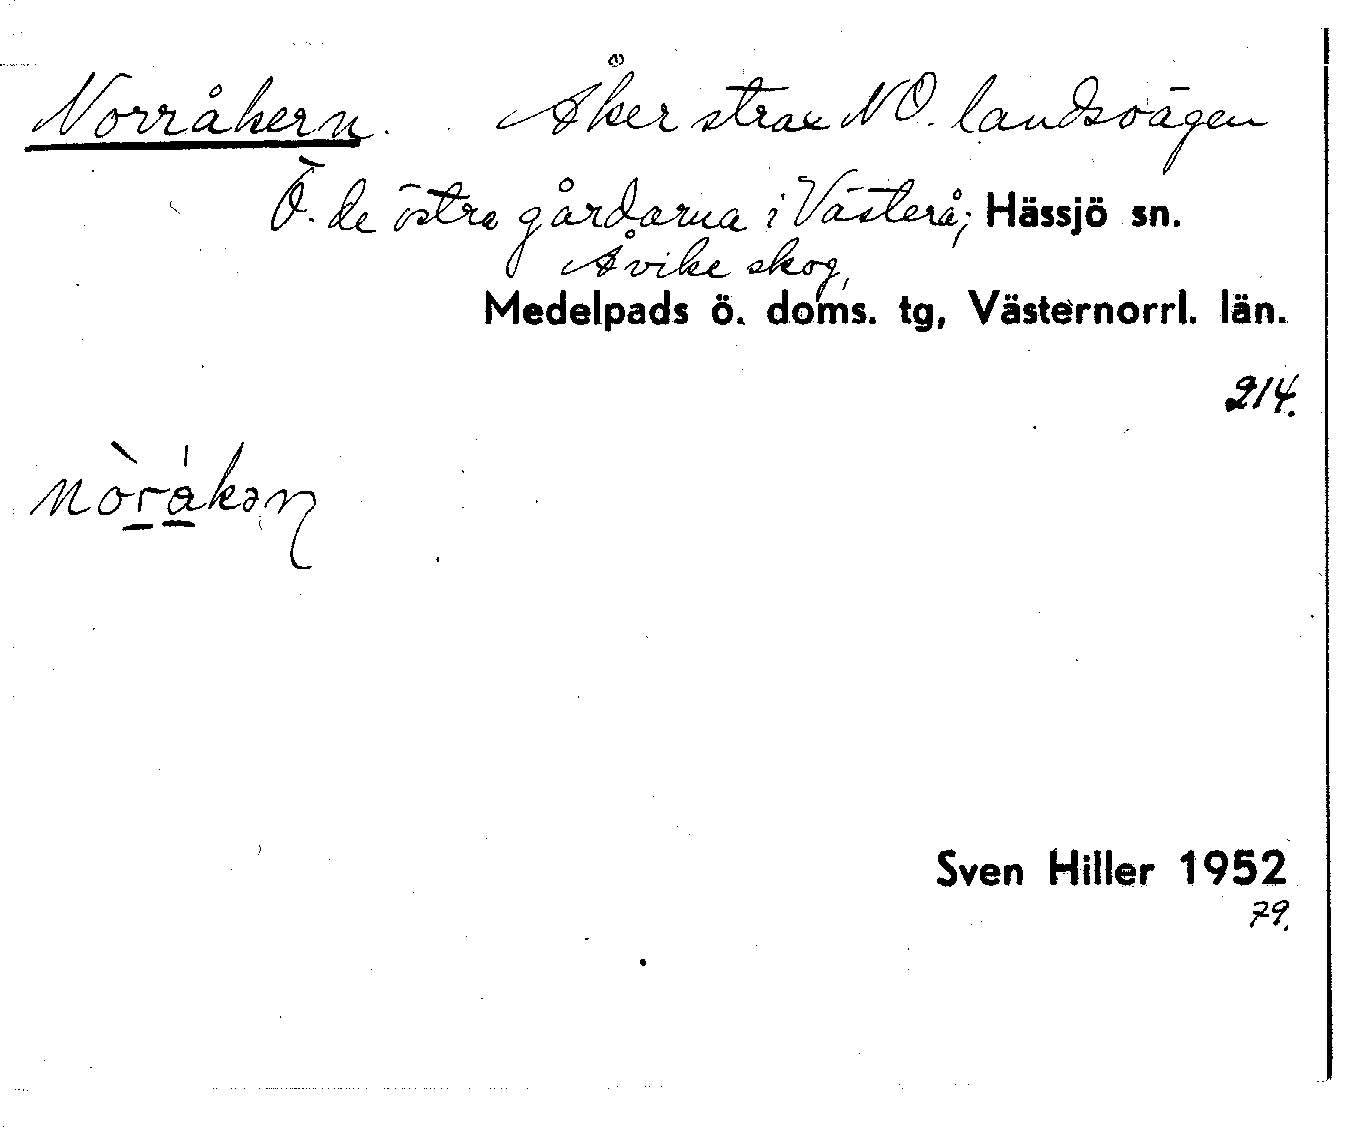 Norråkern. Åker strax NO. landsvägen
Ö. de östra gårdarna i Västerå, Hässjö sn.
Åvike skog,
Medelpads ö. doms. tg, Västernorrl. län.
214.
Sven Hiller 1952
79.